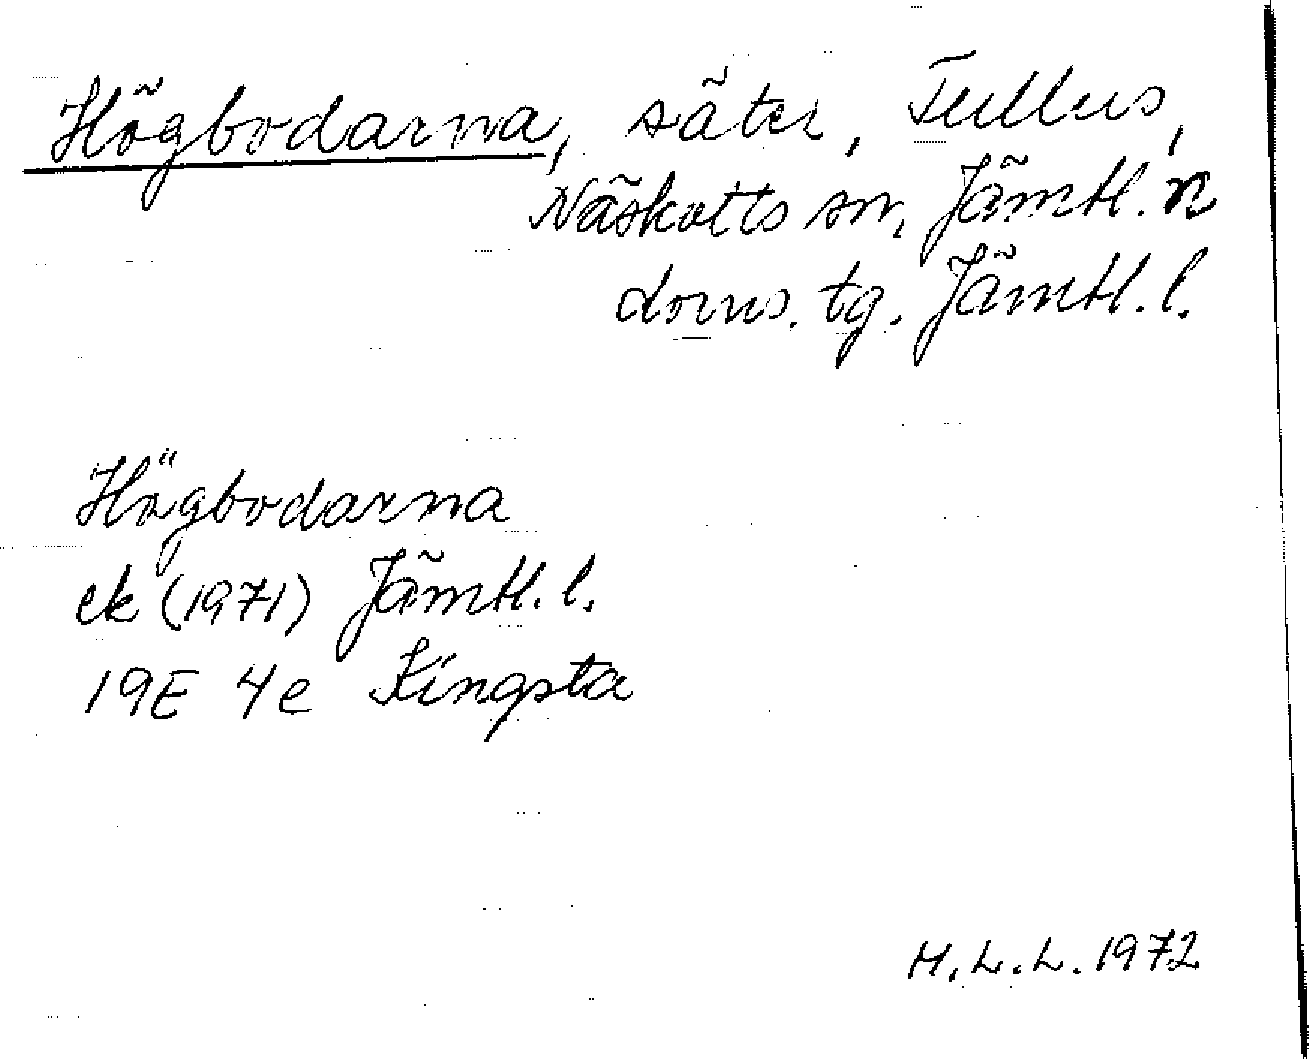 Högbodarna, säter, Tullus,
Näskotts sn, Jämtl. n
doms. tg. Jämtl. l.
Högbodarna
ek (1971) Jämtl. l.
19E 4e Kingsta
H.L.L. 1972